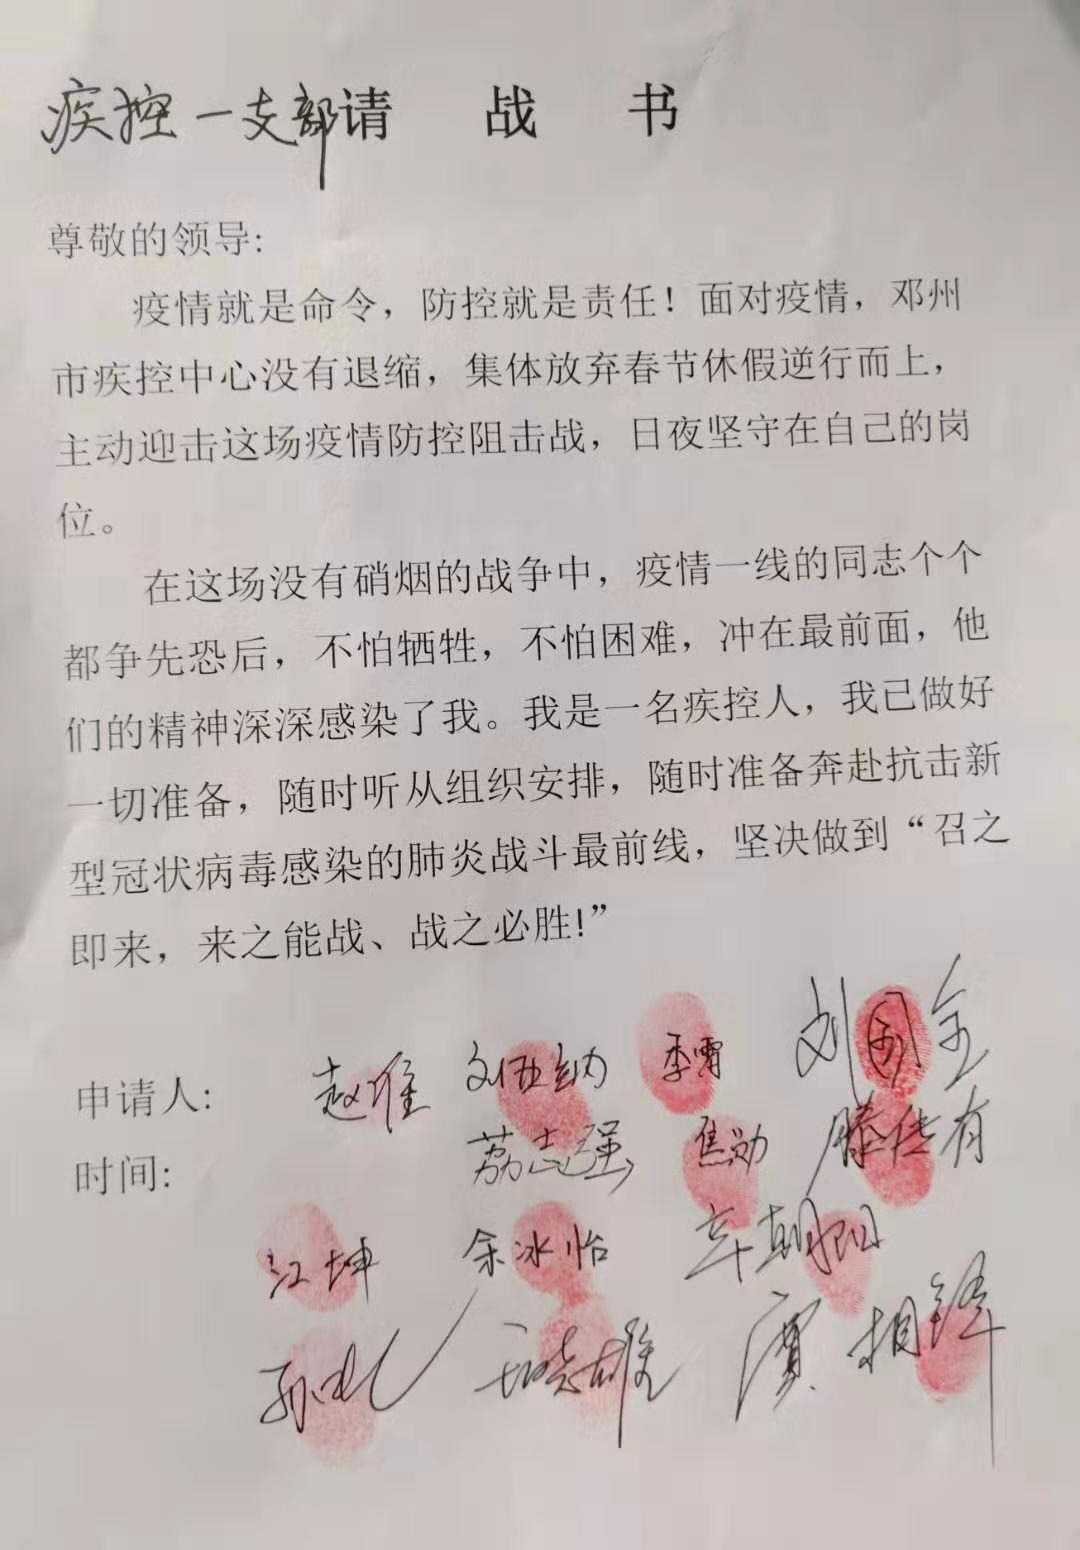 疾控一支部请 战 书
尊敬的领导:
疫情就是命令，防控就是责任！面对疫情，邓州
市疾控中心没有退缩，集体放弃春节休假逆行而上，
主动迎击这场疫情防控阻击战，日夜坚守在自己的岗
位。
在这场没有硝烟的战争中，疫情一线的同志个个
都争先恐后，不怕牺牲，不怕困难，冲在最前面，他
们的精神深深感染了我。我是一名疾控人，我已做好
一切准备，随时听从组织安排，随时准备奔赴抗击新
型冠状病毒感染的肺炎战斗最前线，坚决做到“召之
即来，来之能战、战之必胜!”
申请人: 季雷
时间: 志强 焦勋 滕传有
江坤 余冰怡 辛朝阳
相锋